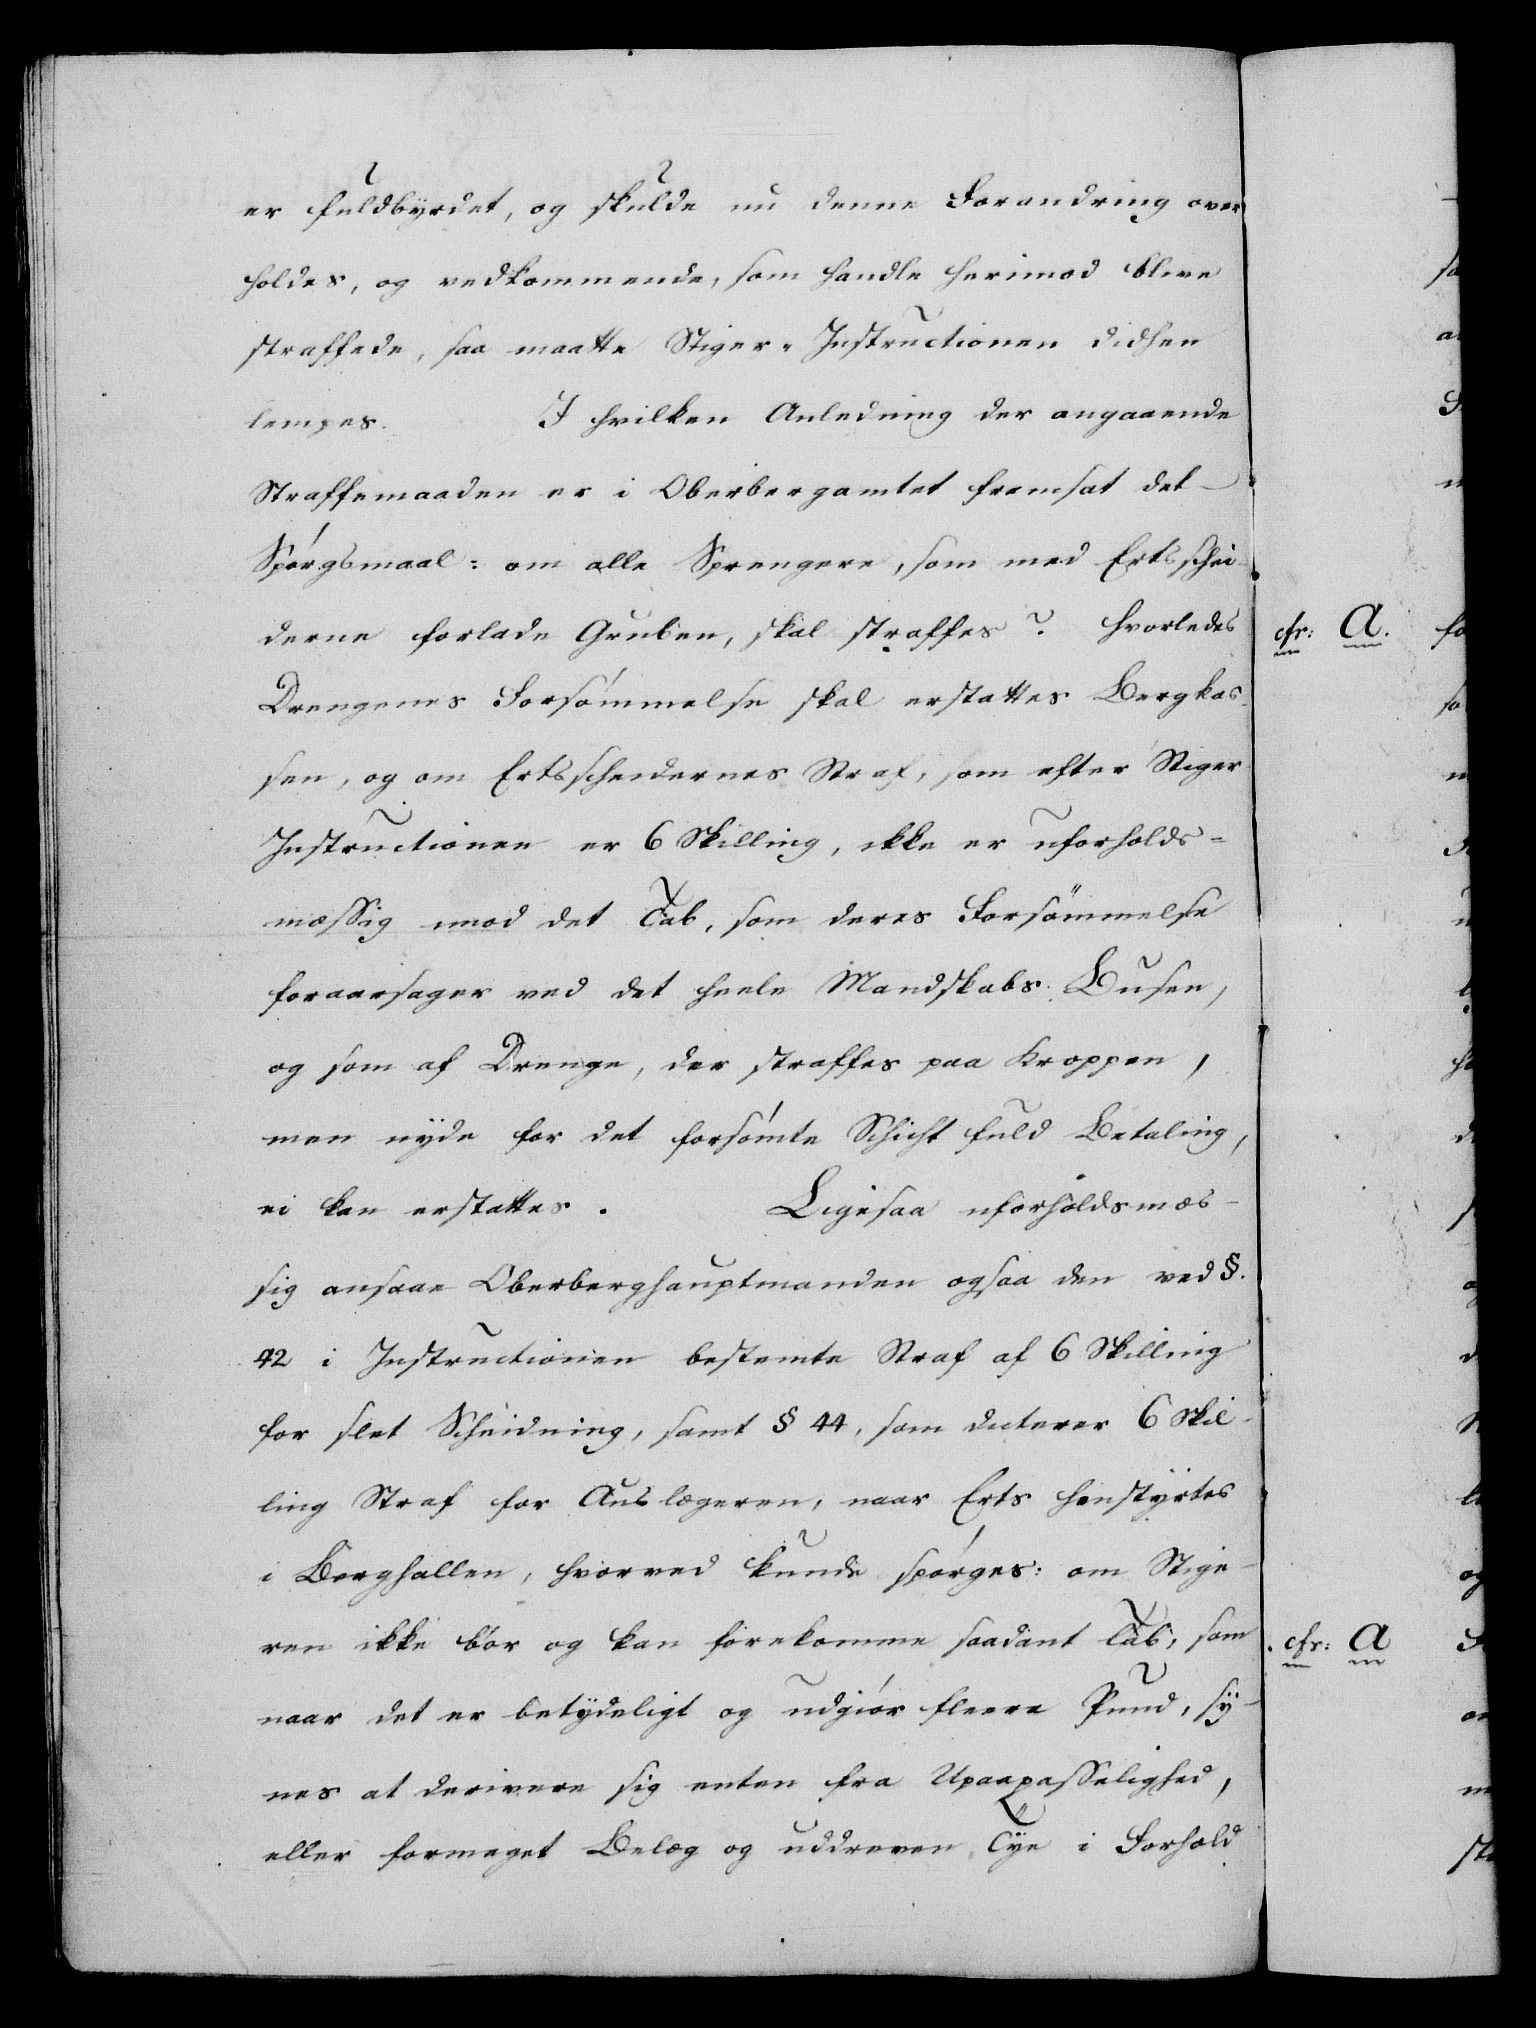 er fuldbyrdet, og skulde nu denne Forandring over
holdes, og vedkommende, som handle herimod blive
straffede, saa maatte Stiger-Instructionen didhen
lempes. I hvilken Anledning der angaaende
Straffemaaden er i Oberbergamtet fremsat det
Spørgsmaal: om alle Sprengere, som med Ertsschei
derne forlade Gruben, skal straffes? hvorledes
cfr: A.
Drengenes Forsømmelse skal erstattes Bergkas
sen, og om Ertsscheidernes Straf, som efter Stiger
Instructionen er 6 Skilling, ikke er uforholds=
mæssig imod det Tab, som deres Forsømmelse
foraarsager ved det heele Mandskabs Busen,
og som af Drenge, der straffes paa Kroppen,
men nyde for det forsømte Schicht fuld Betaling,
ei kan erstattes. Ligesaa uforholdsmæs-
sig ansaae Oberberghauptmanden ogsaa den ved §.
42 i Instructionen bestemte Straf af 6 Skilling
for slet Scheidning, samt § 44, som dicterer 6 Skil-
ling Straf for Auslægeren, naar Erts henstyrtes
i Berghallen, hvorved kunde spørges: om Stige-
ren ikke bør og kan forekomme saadant Tab, som
cfr: A
naar det er betydeligt og udgiør fleere Pund, sy-
nes at derivere sig enten fra Upaapasselighed,
eller formeget Belæg og uddreven Tye i Forhold